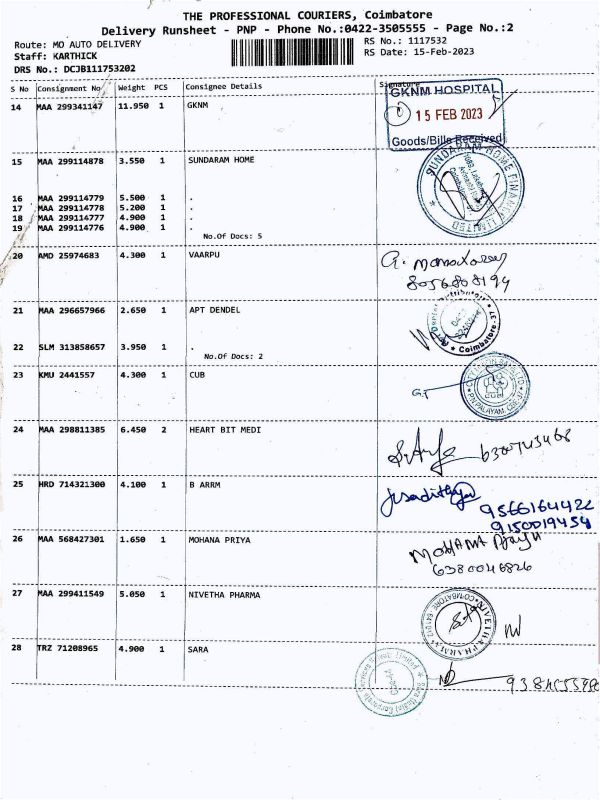 THE PROFESSIONAL COURIERS, Coimbatore
Delivery Runsheet - PNP - Phone No.:0422-3505555 - Page No.:2
Route: MO AUTO DELIVERY
RS No.: 1117532
Staff: KARTHICK
RS Date: 15-Feb-2023
DRS No.: DCJB111753202
S No Consignment No Weight PCS Consignee Details Signature
14 MAA 299341147 11.950 1 GKNM
GKNM HOSPITAL
15 FEB 2023
Goods/Bills Received
15 MAA 299114878 3.550 1 SUNDARAM HOME
SUNDARAM HOME FINANCE LIMITED
16 MAA 299114779 5.500 1 .
17 MAA 299114778 5.200 1 .
18 MAA 299114777 4.900 1 .
19 MAA 299114776 4.900 1 .
No.Of Docs: 5
20 AMD 25974683 4.300 1 VAARPU
8056808194
21 MAA 296657966 2.650 1 APT DENDEL
Coimbatore-37
22 SLM 313858657 3.950 1 .
No.Of Docs: 2
23 KMU 2441557 4.300 1 CUB
CITY UNION BANK LTD
P.N.PALAYAM, CBE-37
24 MAA 298811385 6.450 2 HEART BIT MEDI
25 HRD 714321300 4.100 1 B ARRM
9566164422
9150019454
26 MAA 568427301 1.650 1 MOHANA PRIYA
MOHANA Priya
6380046826
27 MAA 299411549 5.050 1 NIVETHA PHARMA
NIVETHA PHARMA
COIMBATORE
28 TRZ 71208965 4.900 1 SARA